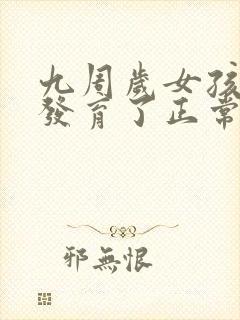 九周歲女孩
發育了正常
邪無恨